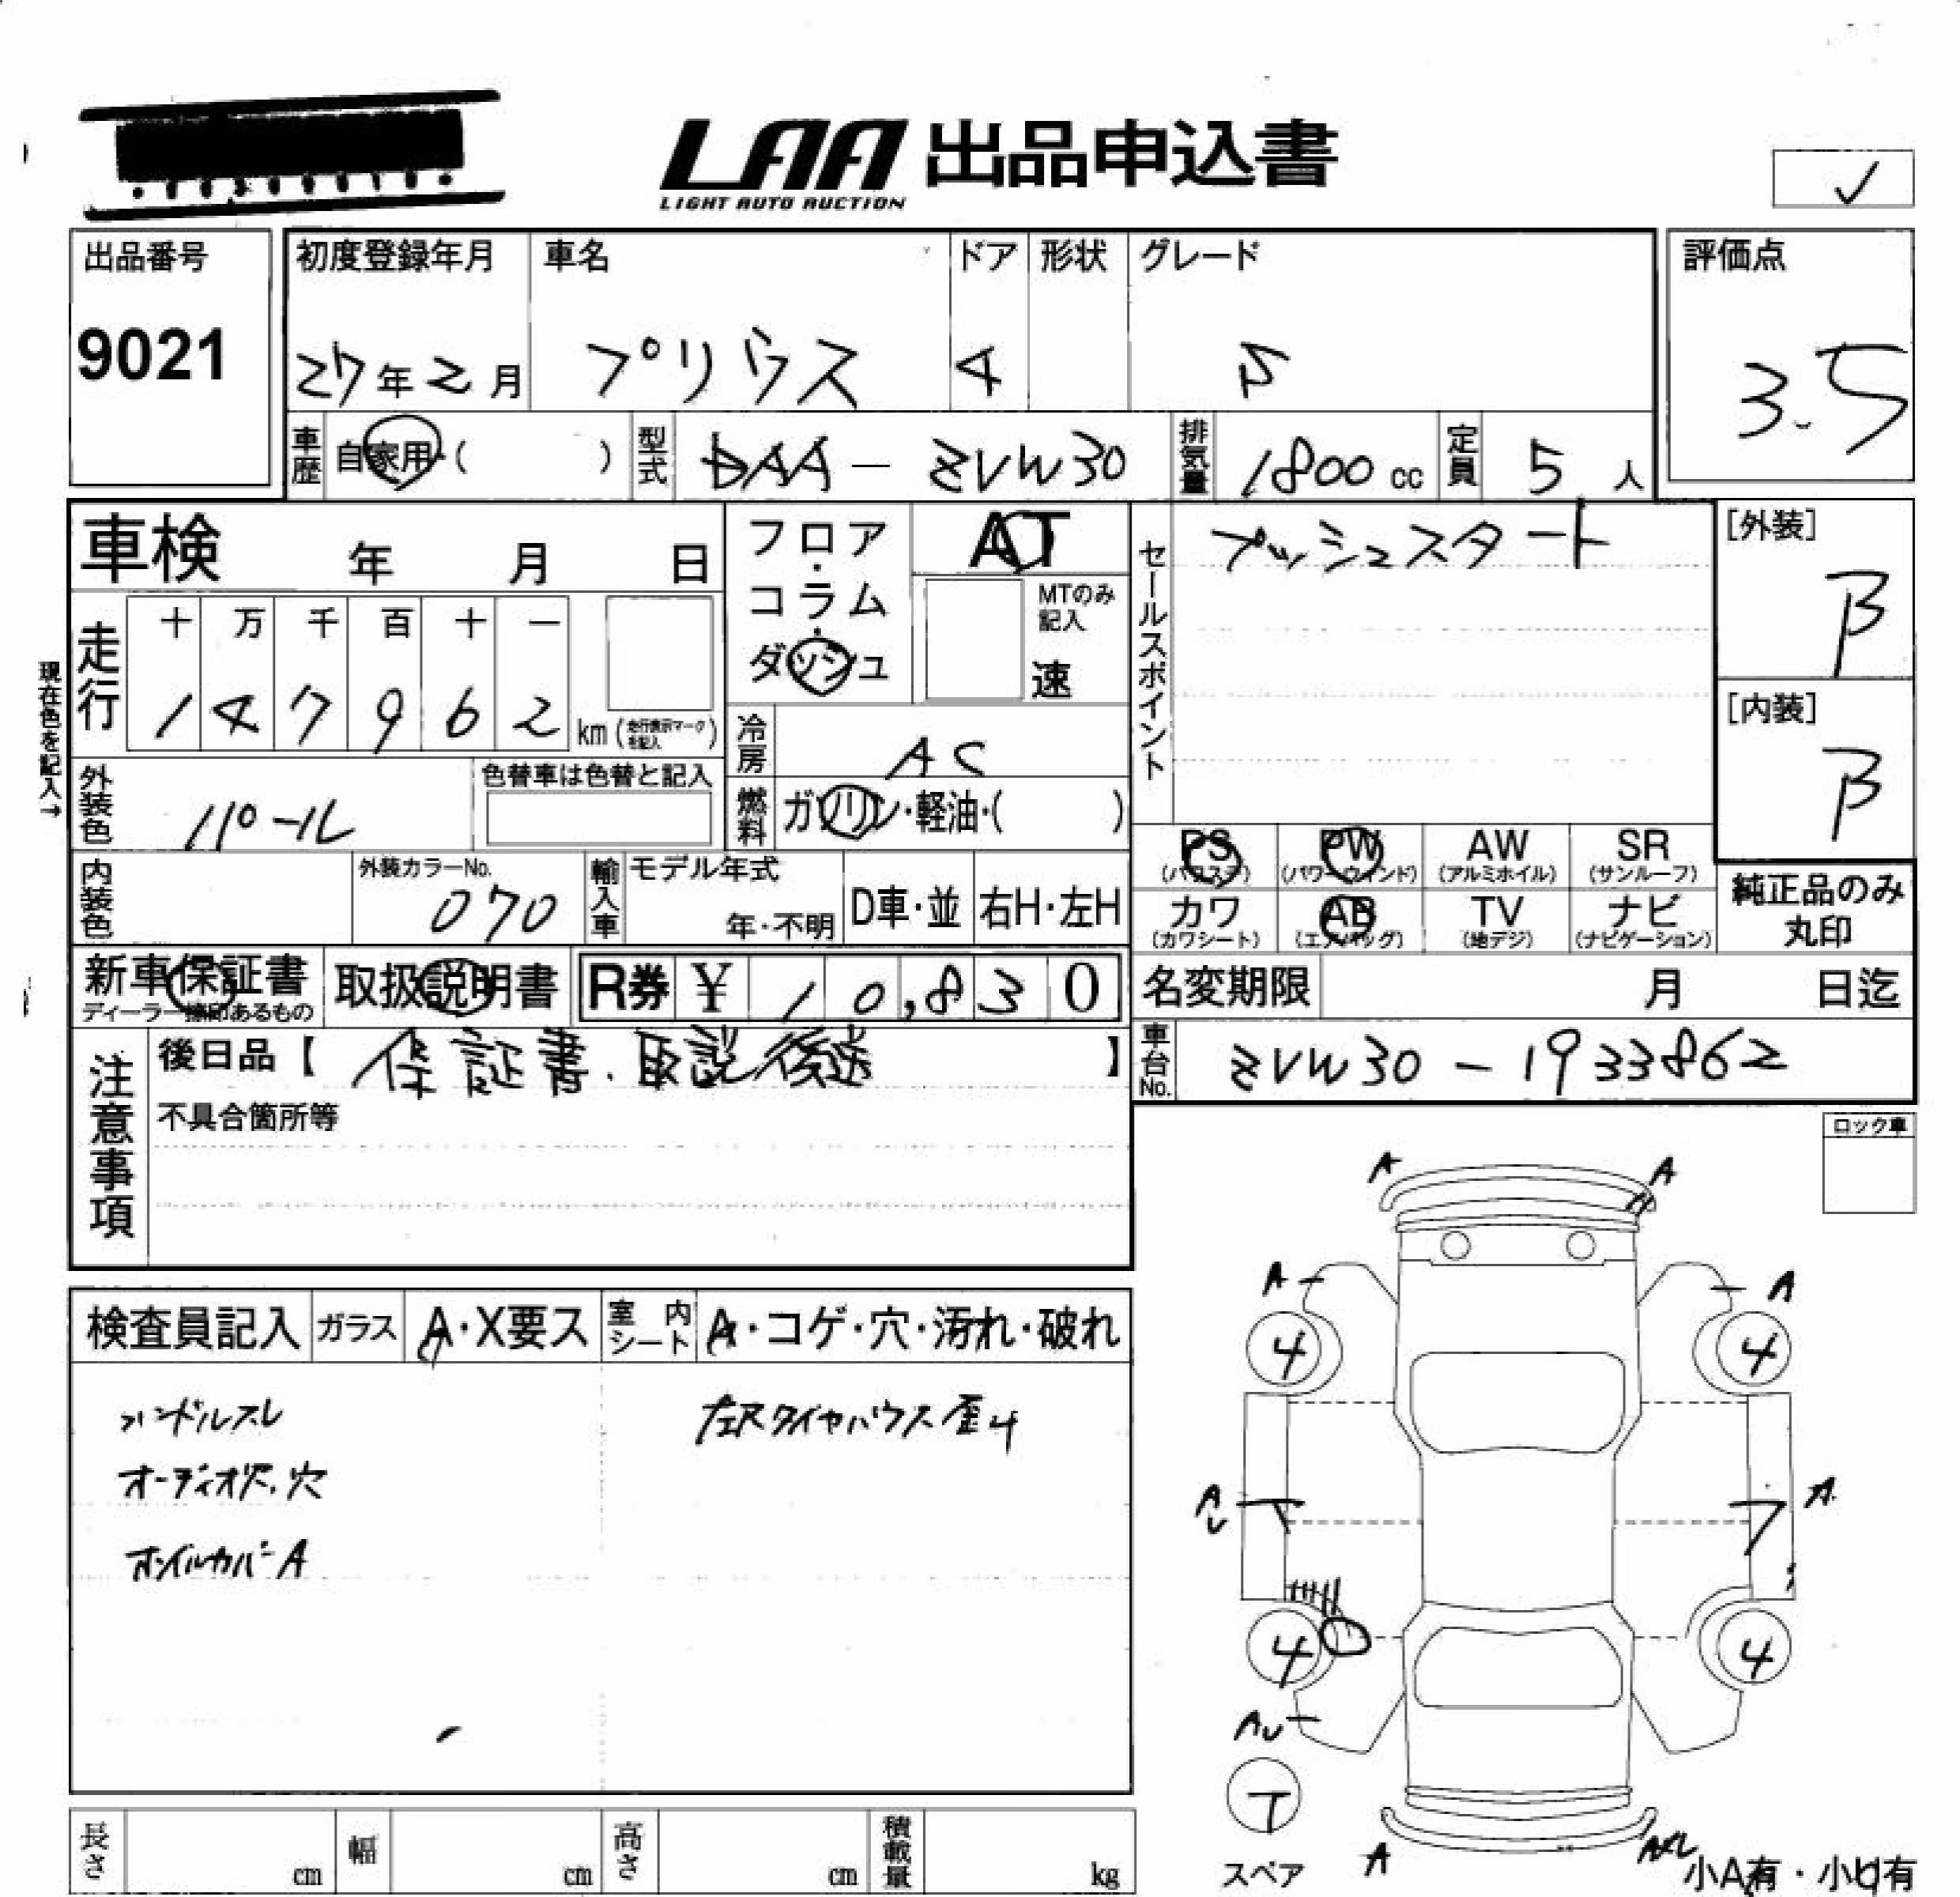 LAA 出品申込書
LIGHT AUTO AUCTION
出品番号 初度登録年月 車名 ドア 形状 グレード 評価点
9021 27年2月 プリウス 4 S 3.5
車歴 自家用・( ) 型式 DAA-ZVW30 排気量 1800cc 定員 5人
車検 年 月 日
フロア・コラム・ダッシュ
AT
MTのみ記入
速
セールスポイント プッシュスタート
[外装]
B
[内装]
B
現在色を記入→
走行 十 万 千 百 十 一
1 4 7 9 6 2 km (走行表示マークを記入)
冷房 AC
外装色 パール 色替車は色替と記入
燃料 ガソリン・軽油・( )
PS (パワステ) PW (パワーウインド) AW (アルミホイル) SR (サンルーフ)
カワ (カワシート) AB (エアバッグ) TV (地デジ) ナビ (ナビゲーション)
純正品のみ丸印
内装色 外装カラーNo. 070 輸入車 モデル年式 年・不明 D車・並 右H・左H
新車保証書 ディーラー捺印あるもの 取扱説明書 R券 ¥ 10,830
名変期限 月 日迄
注意事項 後日品【 保証書.取説後送 】
車台No. ZVW30-1933862
不具合箇所等
ロック車
A A
A A
4 4
検査員記入 ガラス A・X要ス 室内シート A・コゲ・穴・汚れ・破れ
ハンドルスレ
オーディオ穴
ホイルカバーA
タイヤハウス歪み
A A
4 4
AU
T
スペア
A
小A有・小U有
長さ cm 幅 cm 高さ cm 積載量 kg